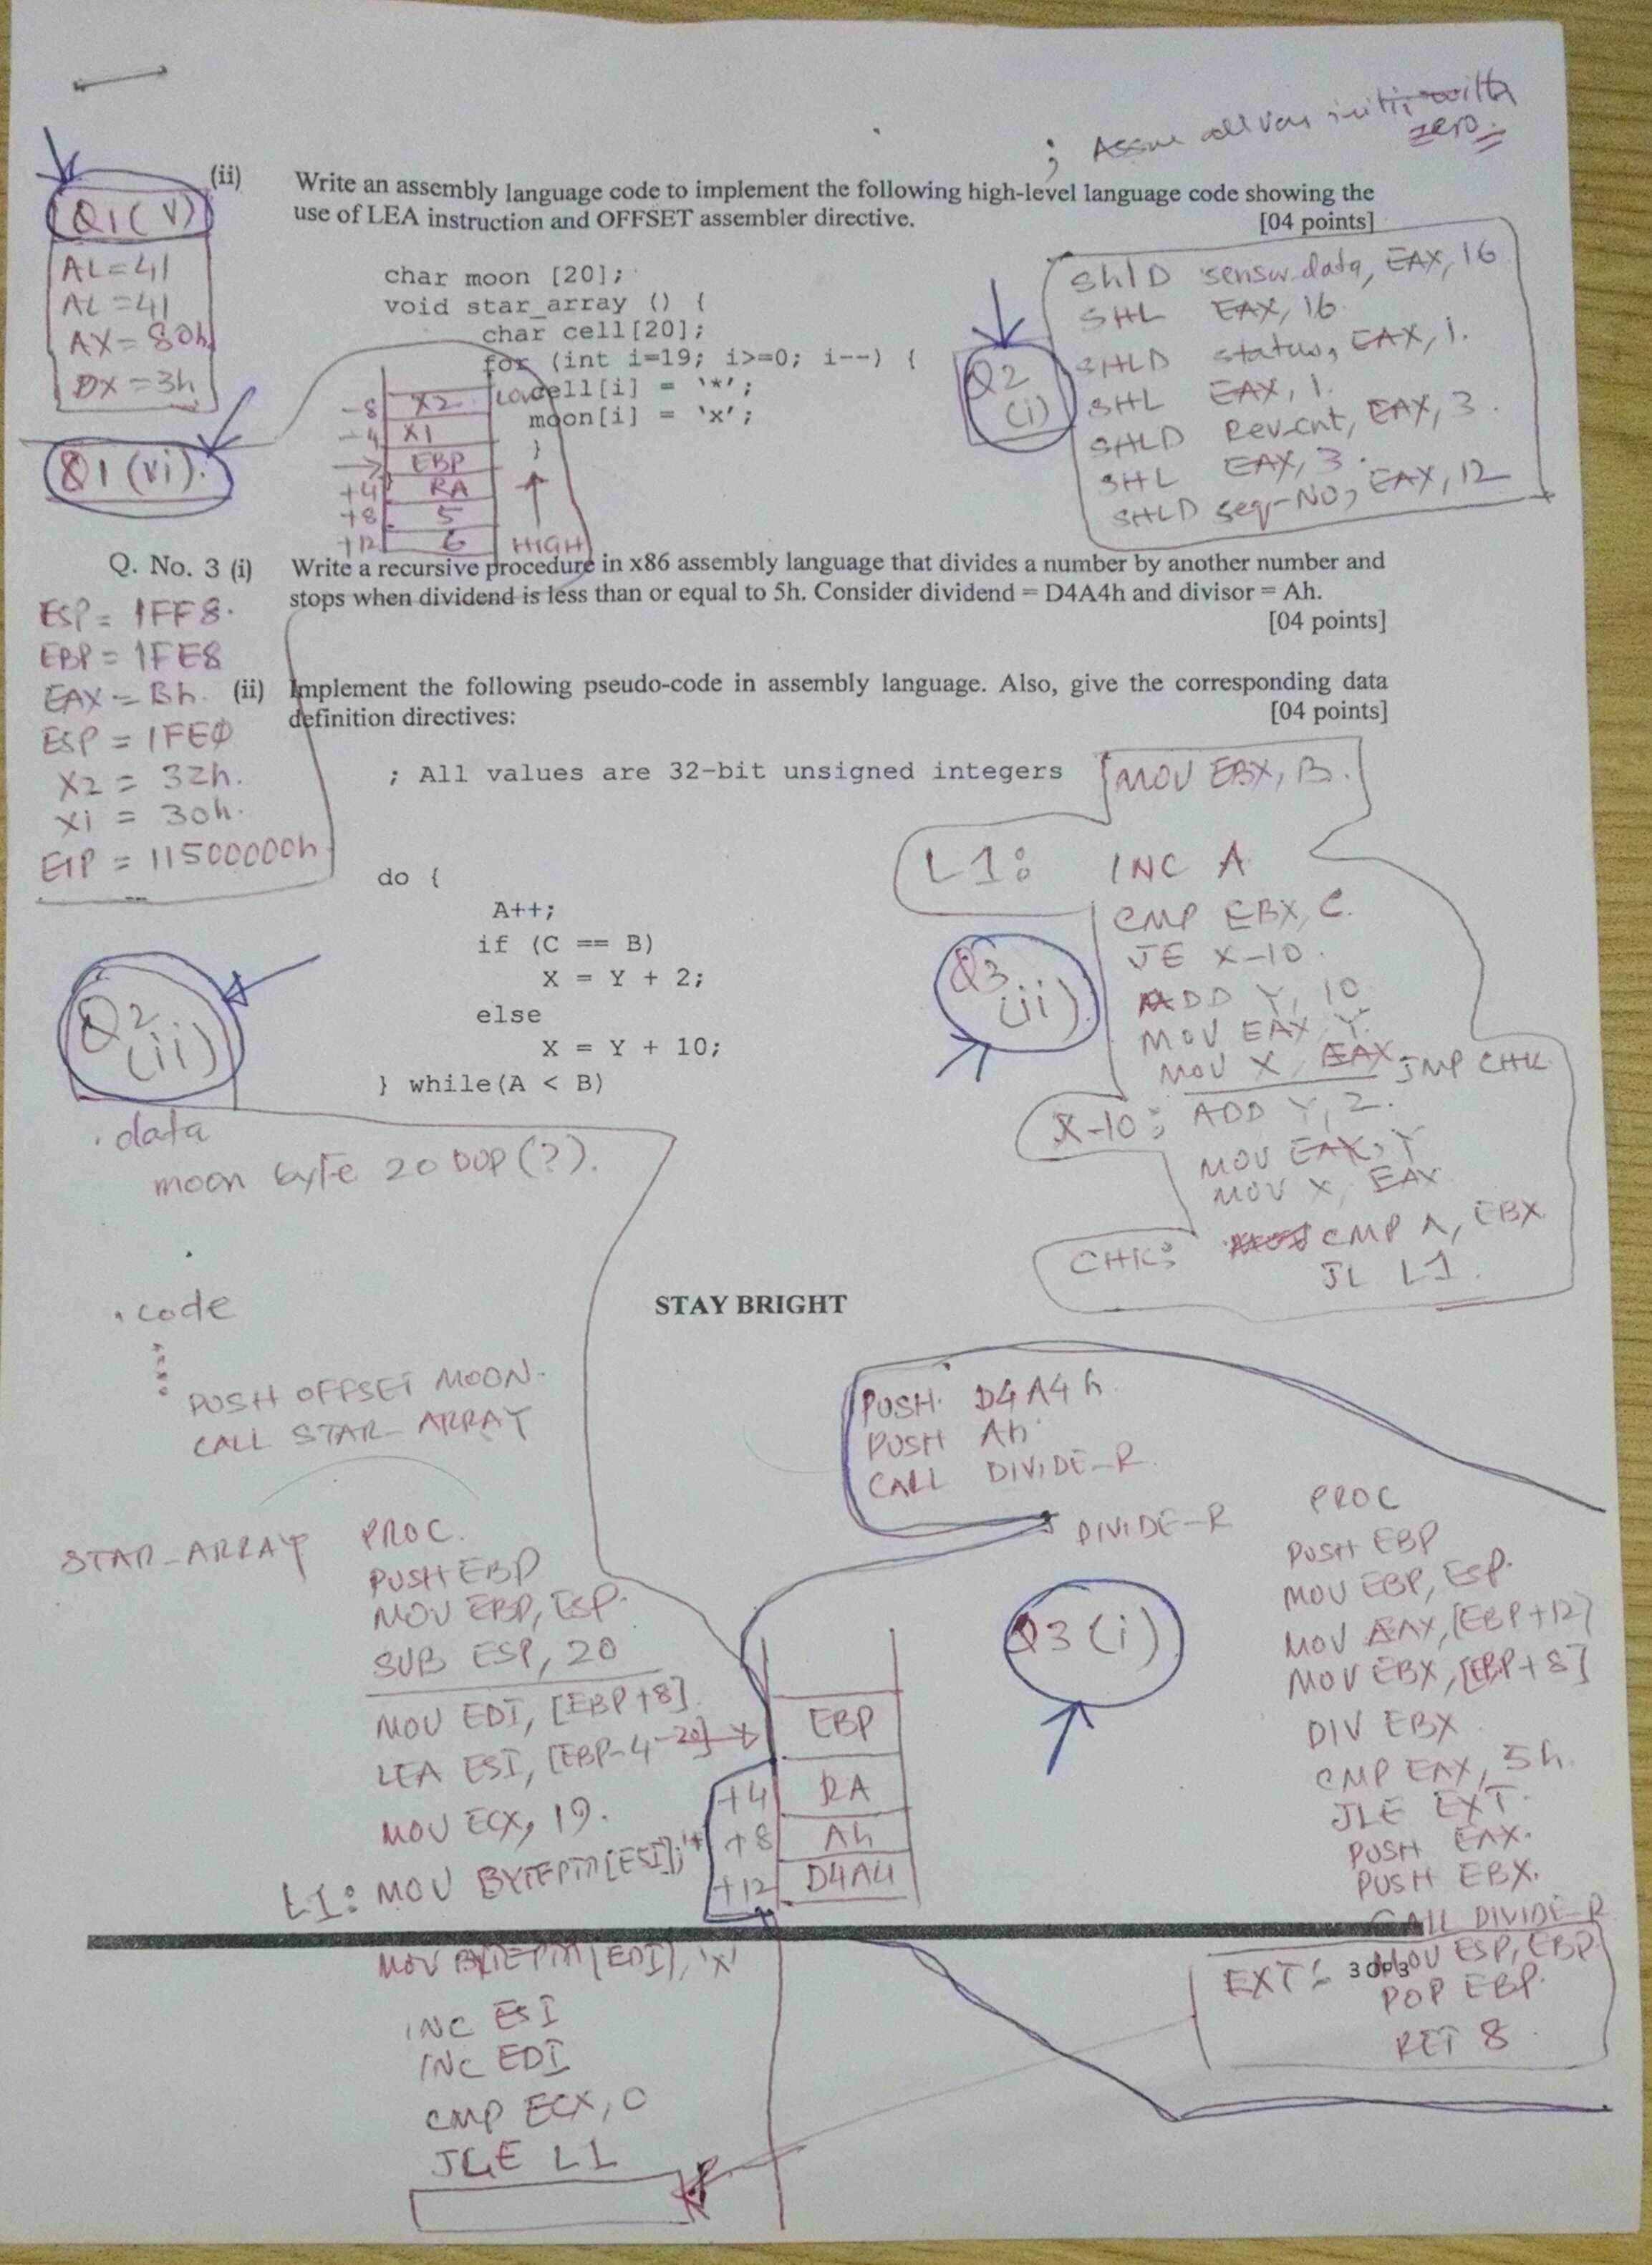 ; Assume all var initi with
zero.
Q1(V)
AL=41
AL=41
AX=80h
DX=3h
(ii) Write an assembly language code to implement the following high-level language code showing the
use of LEA instruction and OFFSET assembler directive. [04 points]
char moon [20];
void star_array () {
char cell[20];
for (int i=19; i>=0; i--) {
cell[i] = '*';
moon[i] = 'x';
}
Q2
(i)
ShlD sensor_data, EAX, 16
SHL EAX, 16
SHLD status, EAX, 1.
SHL EAX, 1.
SHLD Rev_cnt, EAX, 3.
SHL EAX, 3.
SHLD seq-NO, EAX, 12
Q1(vi).
LOW
-8 X2
-4 X1
EBP
+4 RA
+8 5
+12 6
HIGH
Q. No. 3 (i) Write a recursive procedure in x86 assembly language that divides a number by another number and
stops when dividend is less than or equal to 5h. Consider dividend = D4A4h and divisor = Ah.
[04 points]
ESP = 1FF8.
EBP = 1FE8
EAX = Bh.
ESP = 1FE0
X2 = 32h.
X1 = 30h.
EIP = 11500000h
(ii) Implement the following pseudo-code in assembly language. Also, give the corresponding data
definition directives: [04 points]
; All values are 32-bit unsigned integers
do {
A++;
if (C == B)
X = Y + 2;
else
X = Y + 10;
} while(A < B)
Q3
(ii)
MOV EBX, B.
L1: INC A
CMP EBX, C.
JE X-10.
ADD Y, 10
MOV EAX, Y.
MOV X, EAX JMP CHK
X-10: ADD Y, 2.
MOV EAX, Y
MOV X, EAX
CHK: CMP A, EBX
JL L1.
Q2
(ii)
.data
moon byte 20 DUP(?).
.code
PUSH OFFSET MOON.
CALL STAR_ARRAY
STAR_ARRAY PROC.
PUSH EBP
MOV EBP, ESP.
SUB ESP, 20
MOV EDI, [EBP+8]
LEA ESI, [EBP-4-20]
MOV ECX, 19.
L1: MOV BYTEPTR[ESI], '*'
MOV BYTEPTR[EDI], 'x'
INC ESI
INC EDI
CMP ECX, 0
JGE L1
STAY BRIGHT
PUSH D4A4h
PUSH Ah
CALL DIVIDE_R.
Q3(i)
EBP
+4 RA
+8 Ah
+12 D4A4
DIVIDE_R PROC
PUSH EBP
MOV EBP, ESP.
MOV EAX, [EBP+12]
MOV EBX, [EBP+8]
DIV EBX
CMP EAX, 5h.
JLE EXT.
PUSH EAX.
PUSH EBX.
CALL DIVIDE_R
EXT: MOV ESP, EBP
POP EBP.
RET 8
3 OF 3